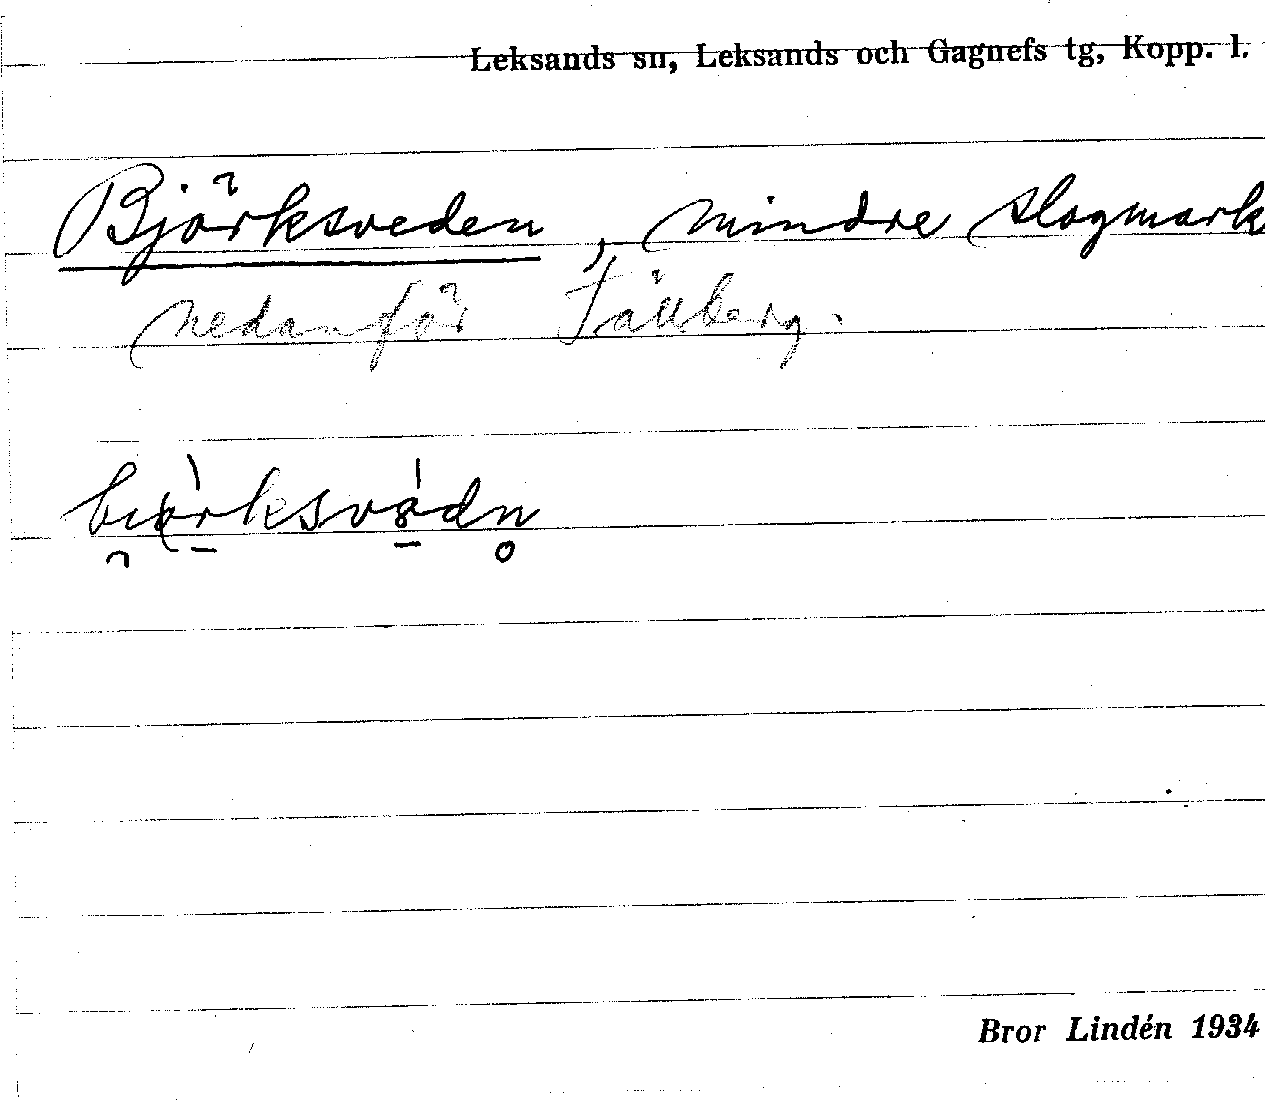 Leksands sn, Leksands och Gagnefs tg, Kopp. l.
Björksveden, mindre slogmark
nedanför Tällberg.
Bror Lindén 1934